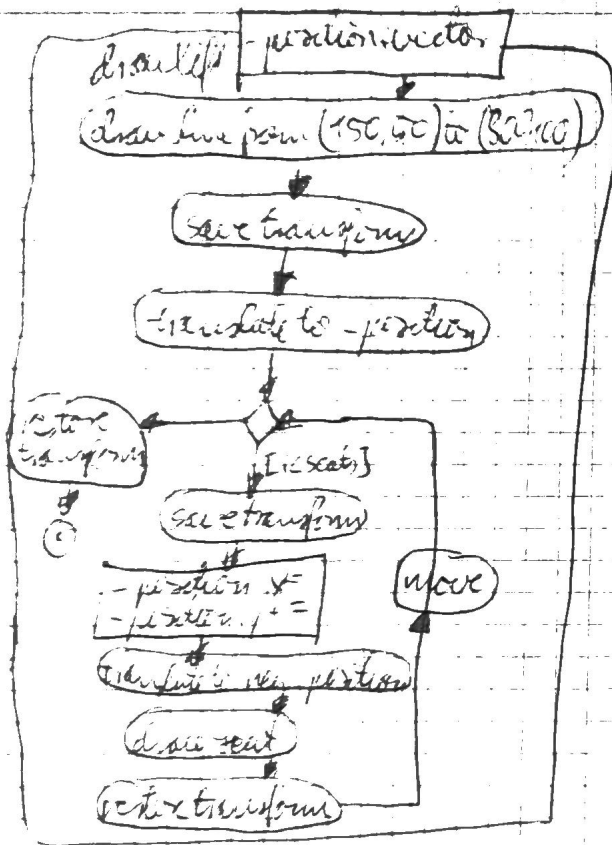 draw lift
-position:vector
draw line from (150,40) to
save transform
translate to -position
restore
transform
save transform
-position.x
-position.y +=
move
translate to new position
draw seat
restore transform